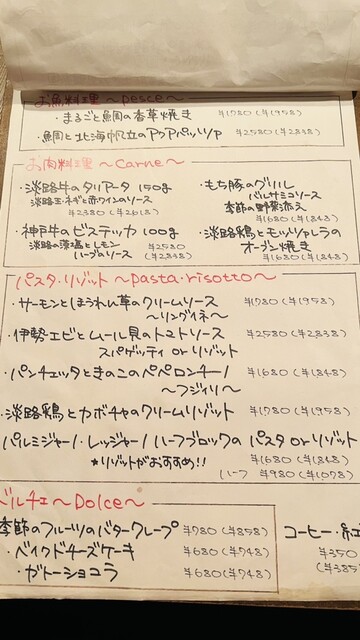 お魚料理 ～pesce～
・まるごと鯛の香草焼き ¥1780(¥1958)
・鯛と北海帆立のアクアパッツァ ¥2580(¥2838)
お肉料理 ～carne～
・淡路牛のタリアータ 150g
淡路玉ネギと赤ワインのソース
¥2380(¥2618)
・もち豚のグリル
バルサミコソース
季節の野菜添え
¥1680(¥1848)
・神戸牛のビステッカ 100g
淡路の藻塩とレモン
ハーブのソース
¥2580
(¥2838)
・淡路鶏とモッツァレラの
オーブン焼き
¥1680(¥1848)
パスタ・リゾット ～pasta・risotto～
・サーモンとほうれん草のクリームソース ¥1780(¥1958)
～リングイネ～
・伊勢エビとムール貝のトマトソース ¥2580(¥2838)
スパゲッティ or リゾット
・パンチェッタときのこのペペロンチーノ ¥1680(¥1848)
～フジィリ～
・淡路鶏とカボチャのクリームリゾット ¥1780(¥1958)
パルミジャーノ・レッジャーノ ハーフブロックの パスタ or リゾット
*リゾットがおすすめ!! ¥1680(¥1848)
ハーフ ¥980(¥1078)
ドルチェ ～Dolce～
季節のフルーツのバタークレープ ¥780(¥858)
・ベイクドチーズケーキ ¥680(¥748)
・ガトーショコラ ¥680(¥748)
コーヒー・紅
¥350
(¥385